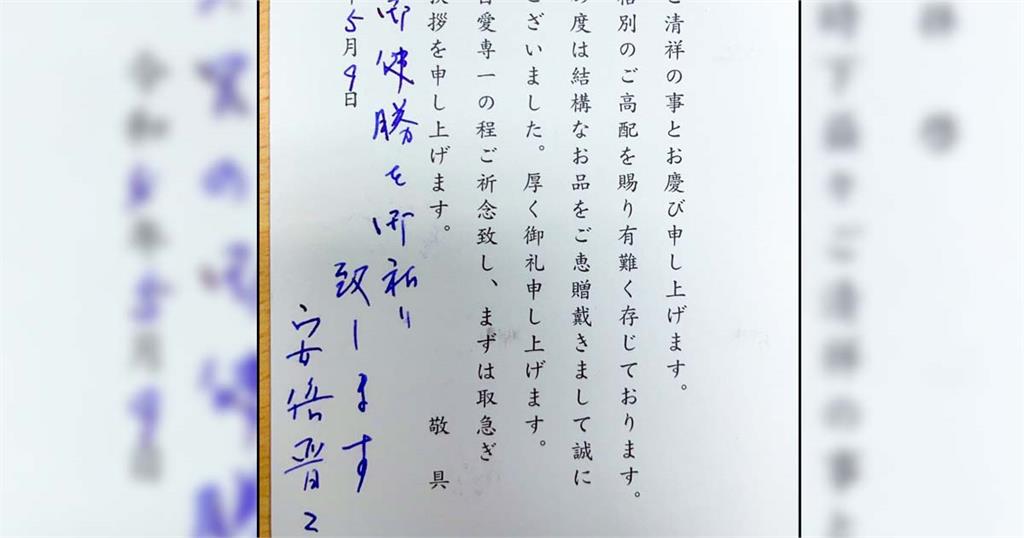 拝啓
時下益々ご清祥の事と
清祥の事とお慶び申し上げます。
格別のご高配を賜り有難く存じております。
の度は結構なお品をご恵贈戴きまして誠に
ざいました。厚く御礼申し上げます。
自愛専一の程ご祈念致し、まずは取急ぎ
挨拶を申し上げます。 敬具
御健勝を御祈り
致します
5月9日
安倍晋